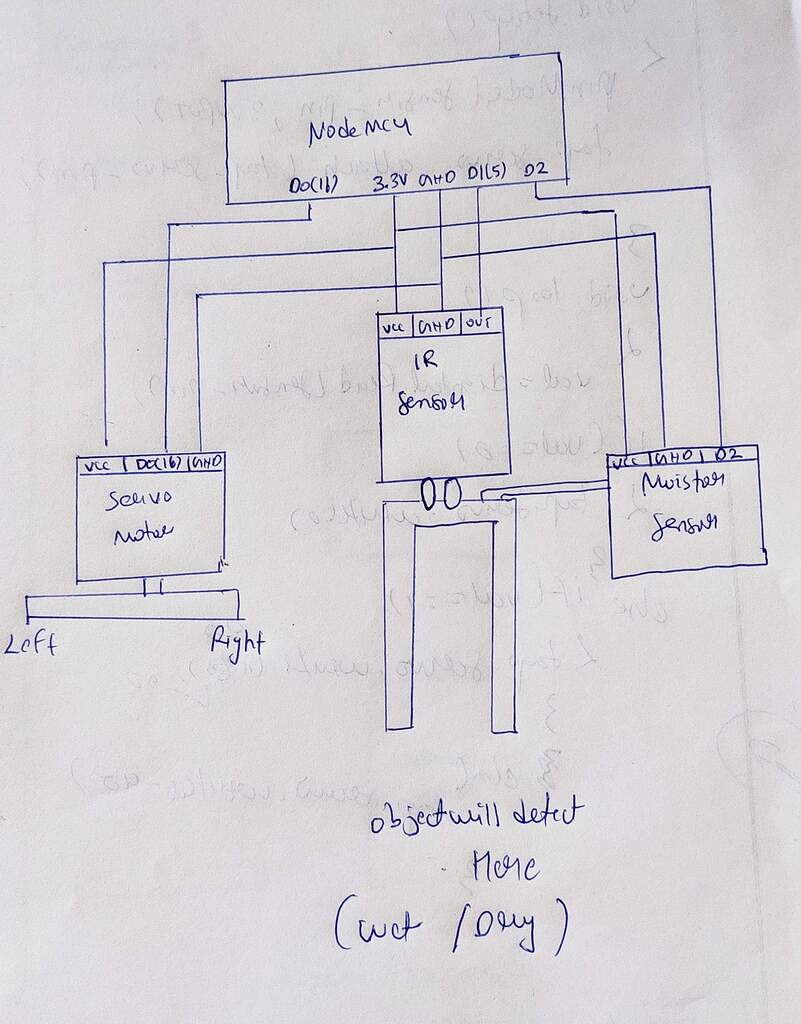 NodeMCU
D0(16) 3.3V GND D1(5) D2
VCC GND OUT
IR
Sensor
VCC D0(16) GND
Servo
Motor
Left
Right
VCC GND D2
Moistor
Sensor
object will detect
Here
(wet / Dry)